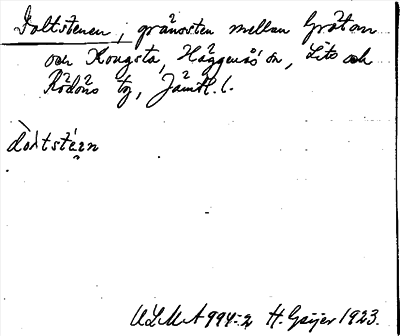 Doltstenen, gränssten mellan Gråtom
och Kougsta, Häggenås sn, Lits och
Rödöns tg, Jämtl. l.
dòltstén
ULMA 994:2 H. Geijer 1923.